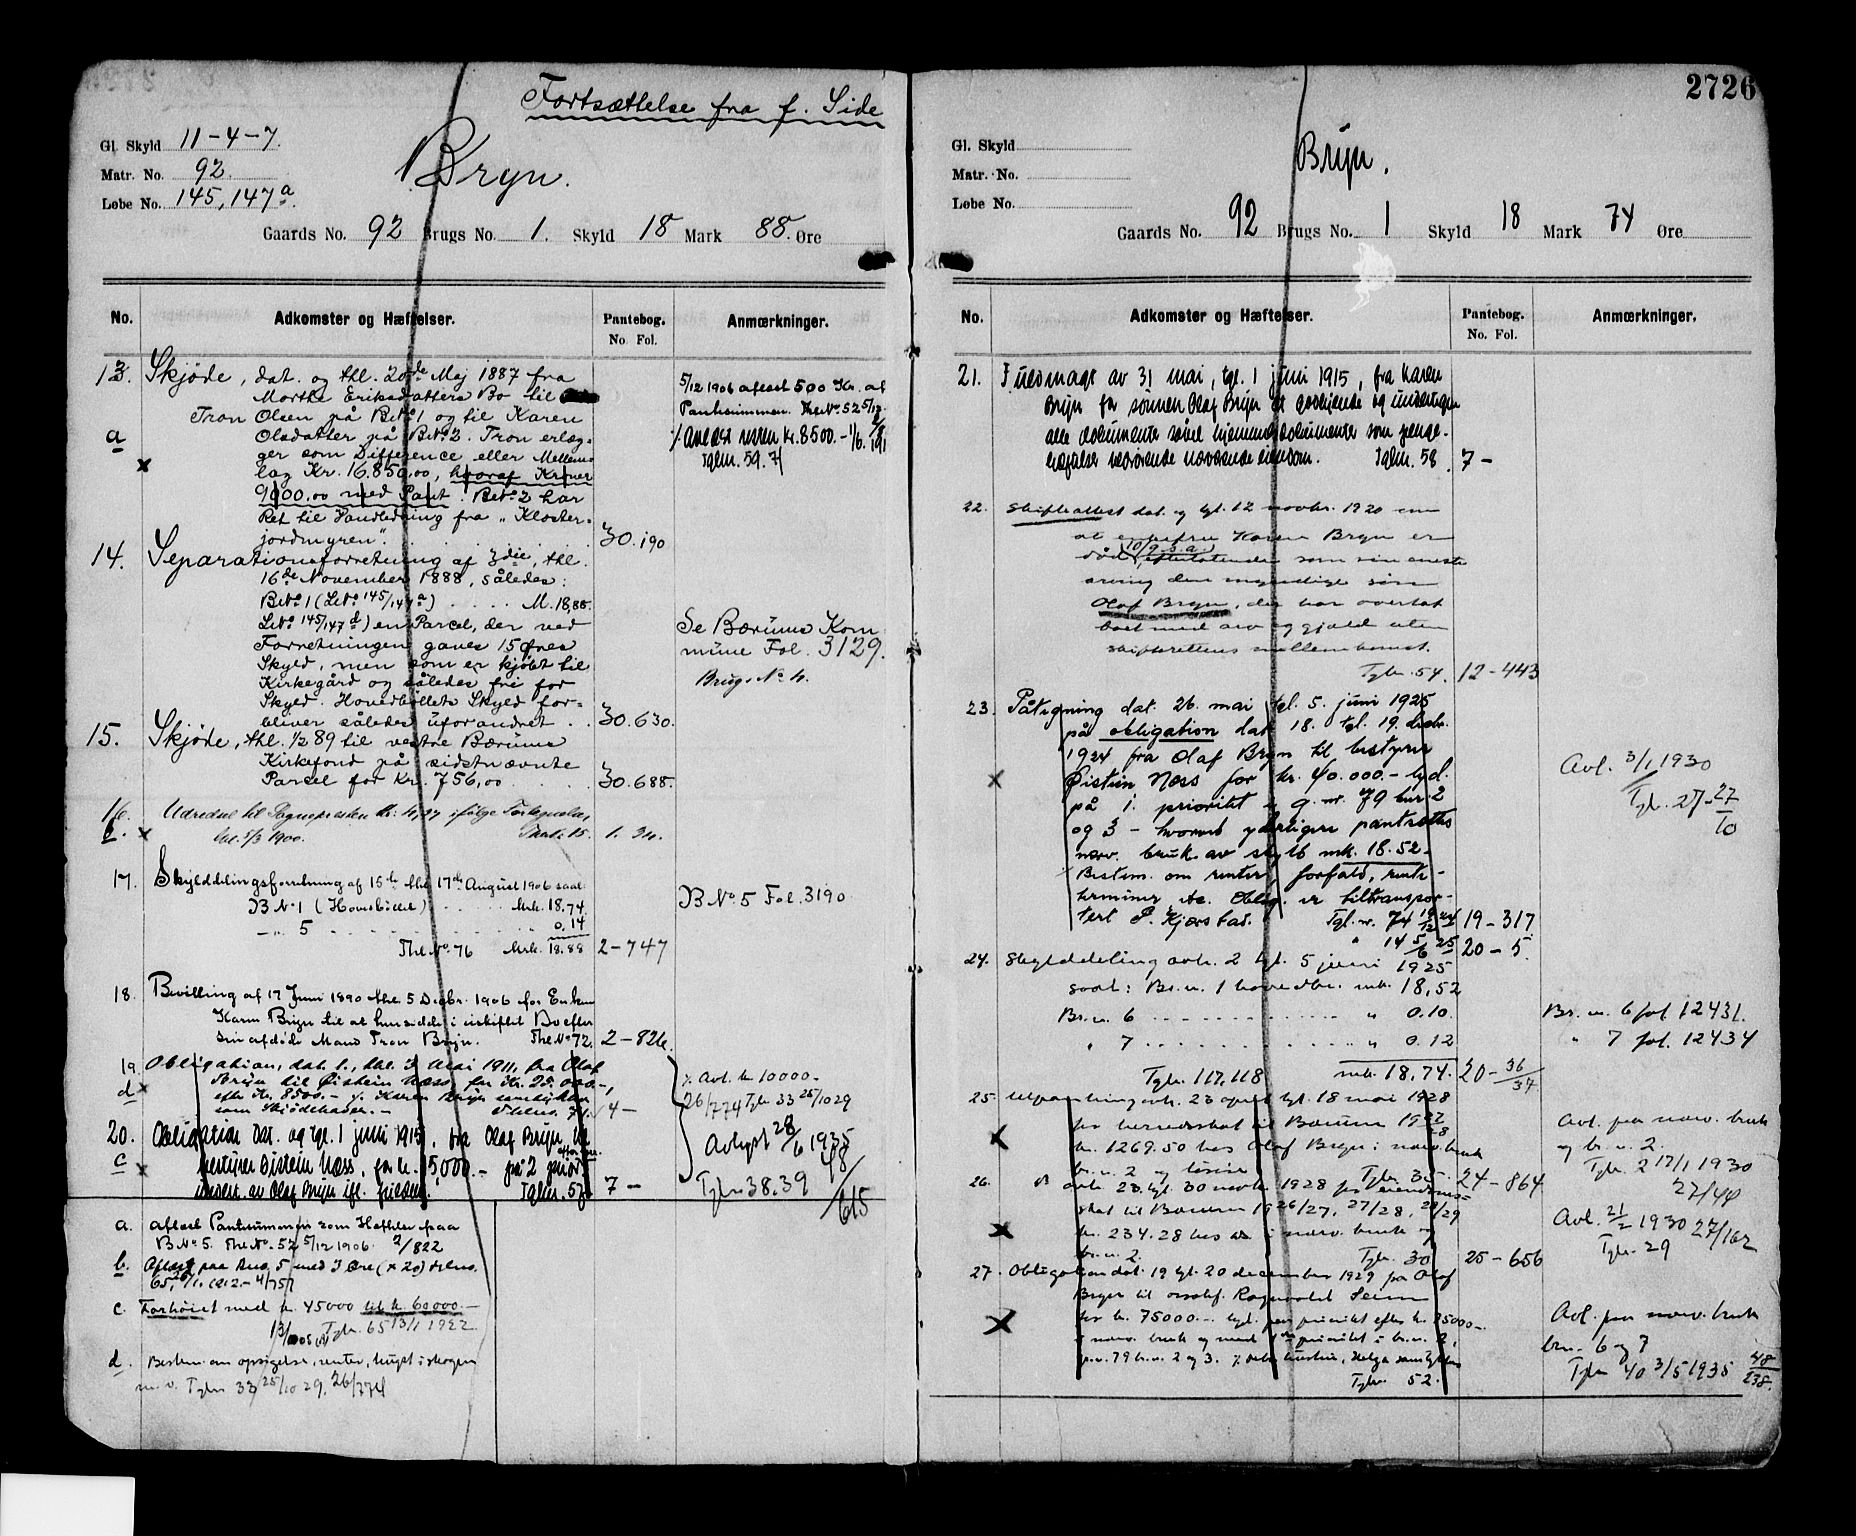 Fortsættelse fra f. Side
Gl. Skyld 11-4-7.
Matr. No. 92.
Løbe No. 145, 147a.
Bryn.
Gaards No. 92 Brugs No. 1. Skyld 18 Mark 88. Øre
No. Adkomster og Hæftelser. Pantebog. No. Fol. Anmærkninger.
13. Skjøde, dat. og thl. 20de Maj 1887 fra
Marthe Eriksdatters Bo til
Tron Olsen på Bno 1 og til Karen
a Olsdatter på Bno 2. Tron erlæg-
ger som Difference eller Mellem-
x lag Kr. 16.850,00, hvoraf Kroner
9000,00 med Pant. Bno 2 har
Ret til Vandledning fra "Kloster-
jordmyren". 30.190
5/12 1906 aflæst 500 Kr. af
Pantesummen. Thl No. 52 5/12
Avlæst resten kr. 8500.- 1/6. 1911
Tglnr. 59.
14. Separationsforretning af 3die, thl.
16de November 1888, således:
Bno 1 (Lno 145/147a) M. 18,88.
Lno 145/147d) en Parcel, der ved
Forretningen gaves 15 Øres
Skyld, men som er kjøbt til
Kirkegård og således fri for
Skyld. Hovedbøllets Skyld for-
bliver således uforandret . . 30.630.
Se Bærums Kom
mune Fol. 3129.
Brugs No 4.
15. Skjøde, thl. 1/2 89 til vestre Bærums
Kirkefond på sidstnævnte
Parcel for Kr. 756,00 30.688.
16. Udredsel til Sognepresten Kr: 4,27 ifølge
b. x thl. 1/3 1900. 15. 1. 34.
17. Skylddelingsforretning af 15de thl. 17de August 1906 saal:
B No 1 (Hovedbøllet) Mrk. 18.74.
-"- 5 0.14
Thl No. 76 Mrk. 18.88 2-747
B No. 5 Fol. 3190
18. Bevilling af 17 Juni 1890 thl. 5 Decbr. 1906 for Enken
Karen Bryn til at hensidde i uskiftet Bo efter
sin afdøde Mand Tron Bryn. Thl No 72. 2-826.
19. Obligation, dat. 1., thl. 3 Mai 1911, fra Olaf
d x Bryn til Øistein Næss, for Kr. 25.000.-,
efter Kr. 8500.- Karen Bryn samtykker
som Skjødehaver.- 4-
Avl. kr 10000.-
26/774 Tglnr 33 25/10 29
20. Obligation dat. og tgl. 1 juni 1915, fra Olaf Bryn til
c x bestyrer Øistein Næss, for kr. 15,000.- på 2 prior.
Tglnr. 57 7-
Avlyst 28/6 1935
Tglnr 38.39 48/615
a. aflæst Pantesummen som Hæfteler paa
B No 5. Thl No. 52 5/12 1906. 2/822
b. Aflæst paa bno. 5 med 3 Øre (x 20)
c. Forhøiet med kr. 45000 til kr. 60000.-
Tglnr. 65 13/1 1922
d. Bestem om opsigelse, renter, hugst i skogen
m. v. Tglnr 33 25/10 29. 26/774
2726
Gl. Skyld
Matr. No.
Løbe No.
Bryn.
Gaards No. 92 Brugs No. 1 Skyld 18 Mark 74 Øre
No. Adkomster og Hæftelser. Pantebog. No. Fol. Anmærkninger.
21. Fuldmagt av 31 mai, tgl. 1 juni 1915, fra Karen
Bryn for sønnen Olaf Bryn til at godkjende og undertegne
alle dokumenter såvel hjemmelsdokumenter som penge-
hæftelser vedrørende nærværende eiendom. Tglnr. 58. 7-
22. Skifteattest dat. og tgl. 12 novbr. 1920 om
at enkefru Karen Bryn er
død 10/9 s.a., efterlatende som sin eneste
arving den myndige søn
Olaf Bryn, der har overtat
boet med arv og gjæld uten
skifterettens mellemkomst.
Tglnr. 54. 12-443
23. Påtegning dat. 26. mai, tgl. 5. juni 1925
på obligation dat 18. tgl. 19. decbr.
1924 fra Olaf Bryn til bestyrer
x Øistein Næss for kr. 40.000.- lyd.
på 1. prioritet i g. nr. 79 bnr. 2
og 3 - hvorved yderligere pantsættes
nærv. bruk av skyld mk. 18.52.-
Bestem. om renter, forfald, rente-
terminer etc. Oblig. er tiltranspor-
tert P. Kjørstad. Tgl. nr. 74 19/12 24 19-317.
" 14 5/6 25 20-5.
Avl. 3/1 1930
Tgl. 27- 27/10
24. Skylddeling avh. 2 tgl. 5 juni 1925
saal: Br.n. 1 hovedbr. mk. 18,52
Br.n. 6 " 0.10.
" 7 " 0.12
Tglnr. 117, 118 mk. 18,74. 20-36/37
Br. n. 6 fol. 12431.
" 7 fol. 12434
25. Utpantning avh. 23 april tgl. 18 mai 1928
x for herredsskat til Bærum 1927/28
kr. 1269.50 hos Olaf Bryn i nærv. bruk
br. n. 2 og løsøre Tglnr. 35. 24-864
Avl. paa nærv. bruk
og br. n. 2.
Tglnr. 2 17/1 1930
27/48
26. do avh. 23. tgl. 30 novbr. 1928 for eiendoms-
skat til Bærum 1926/27, 27/28, 28/29
x kr. 234.28 hos do i nærv. bruk og
br. n. 2. Tglnr. 30 25-656
Avl. 21/2 1930 27/162
Tglnr. 29
27. Obligation dat. 19 tgl. 20 december 1929 fra Olaf
Bryn til Ragnvald Seim
x for kr. 75000.-. lyd. paa prioritet efter kr. 75000.-
i nærv. bruk og med 1ste prioritet i br. n. 2,
g.n. 79 br. n. 2 og 3. Helga samtykker
Tglnr. 52.
Avl. paa nærv. bruk
brn. 6 og 7
Tglnr 40 3/5 1935 48/238.